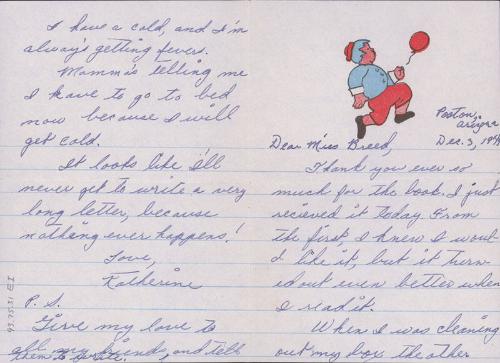 Poston,
Dec. 3, 194
Dear Miss Breed,
Thank you ever so
much for the book. I just
recieved it today. From
the first, I knew I woul-
d like it, but it turn-
ed out even better when
I read it.
When I was cleaning
out my box the other
I have a cold, and I'm
always getting fevers.
Momma's telling me
I have to go to bed
now because I will
get cold.
It looks like I'll
never get to write a very
long letter, because
nothing ever happens!
Love,
Katherine
P. S.
Give my love to
all my friends, and tell
them to write,
93.75.31 EI